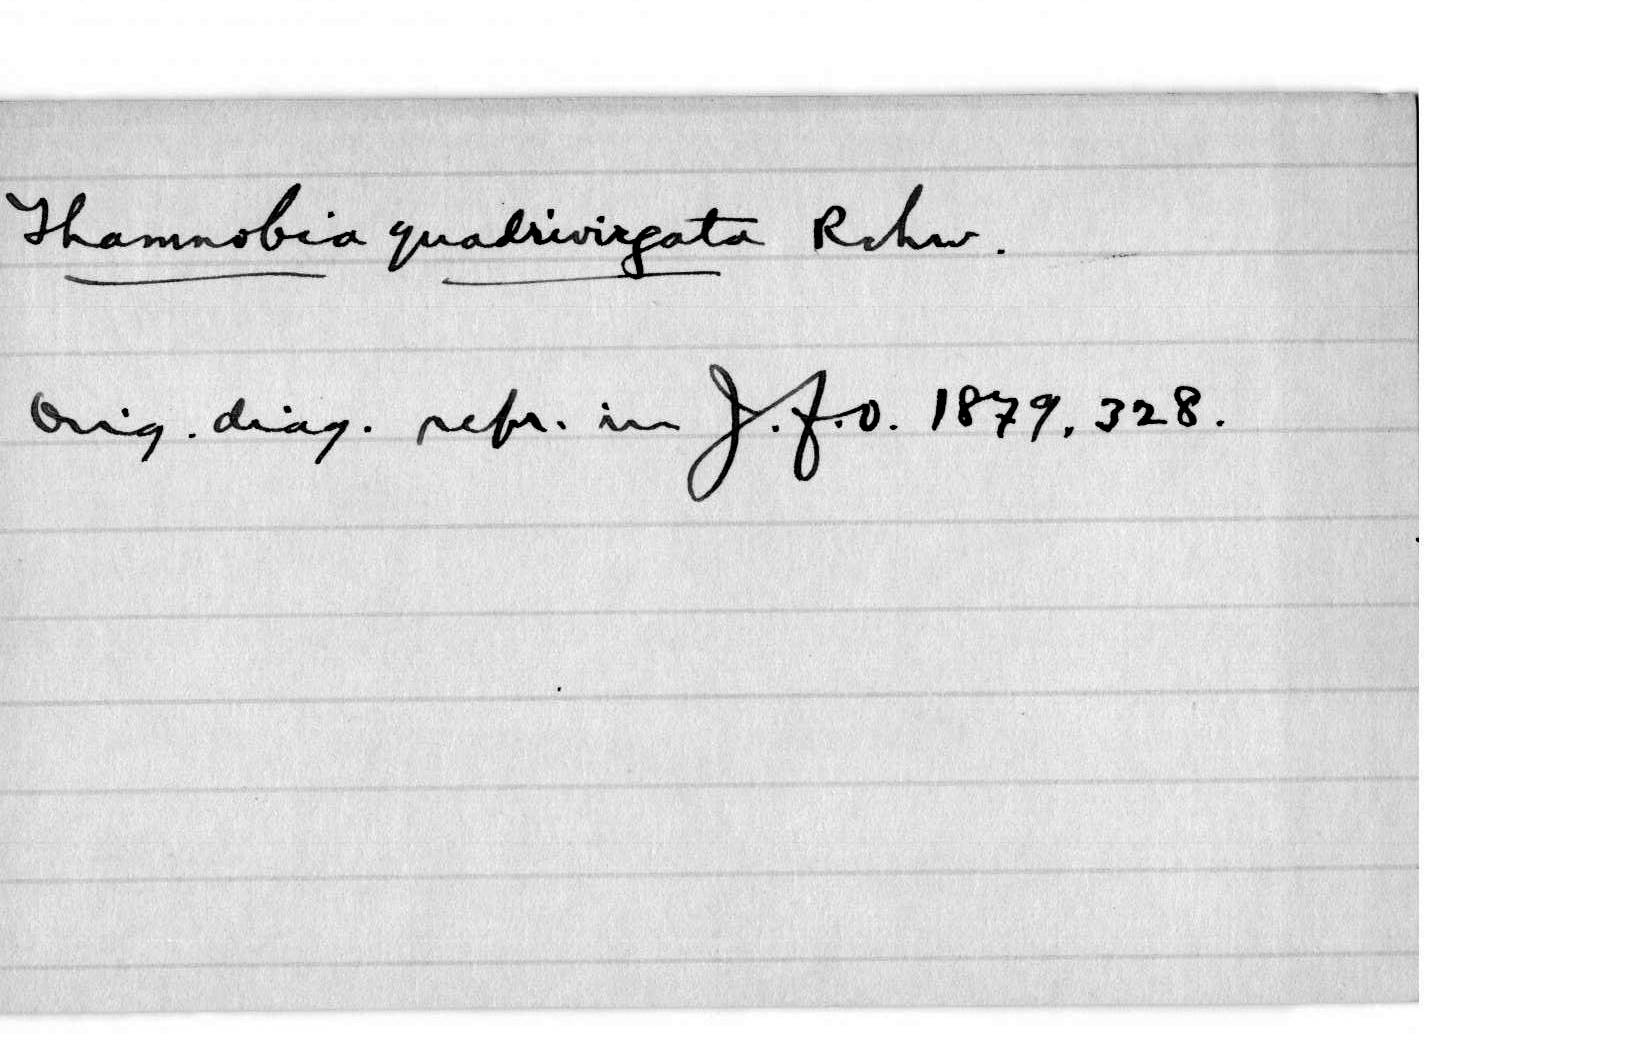 Thamnobia quadrivirgata Rchw.
Orig. diag. repr. in J.f.O. 1879, 328.